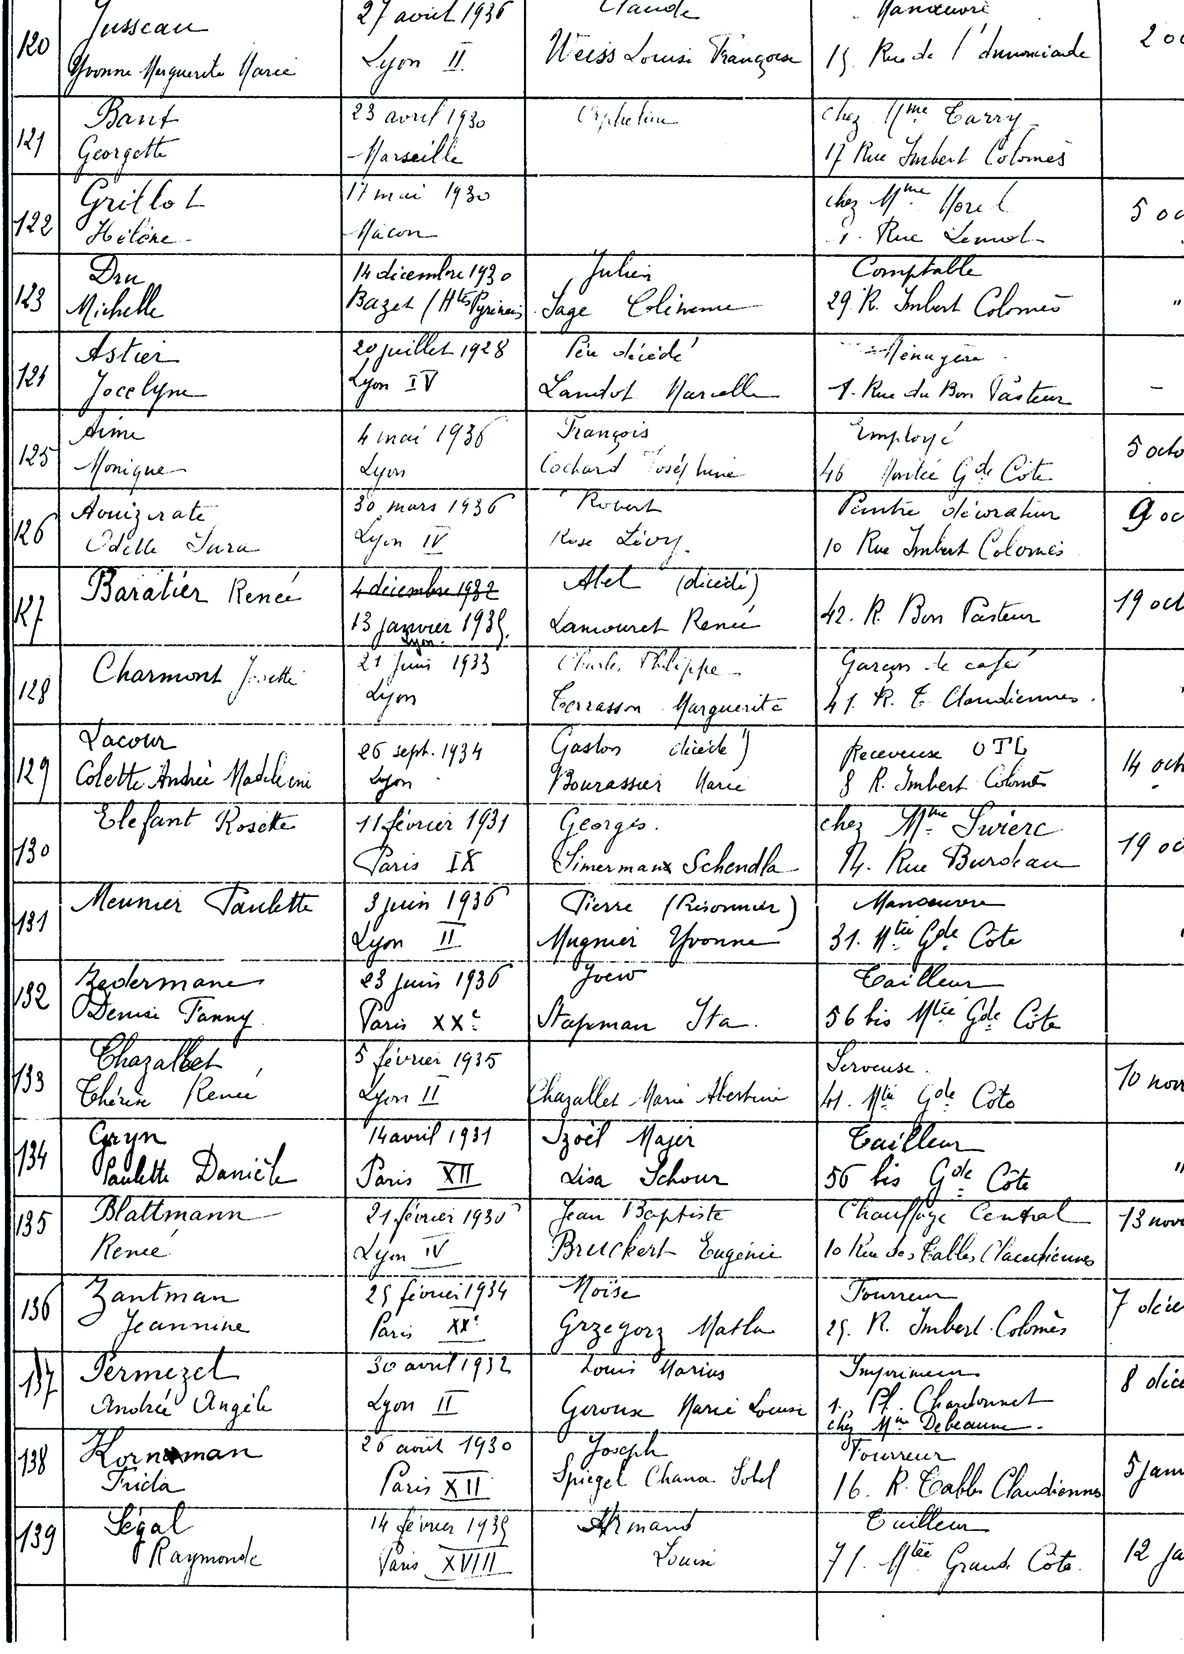 120 Jusseau 27 avril 1936 Claude Manœuvre
Yvonne Marguerite Marie Lyon II Weiss Louise Françoise 15. Rue de l'Annonciade 2 oc
121 Bant 23 avril 1930 Orpheline chez Mme Tarry
Georgette Marseille 17 Rue Imbert Colomès
122 Grillot 17 mai 1930 chez Mme Morel 5 oc
Hélène Macon 1. Rue Lemot
123 Dru 14 décembre 1930 Julien Comptable
Michelle Bazet (Htes Pyrénées) Sage 29 R. Imbert Colomès "
124 Astier 20 juillet 1928 Père décédé Ménagère
Jocelyne Lyon IV Landot Marcelle 1. Rue du Bon Pasteur -
125 Aime 4 mai 1936 François Employé 5 octo
Monique Lyon Cochard Joséphine 46 Montée Gde Côte
126 Aouizrate 30 mars 1936 Robert Peintre décorateur 9 oc
Odette Sara Lyon IV Rose Lévy. 10 Rue Imbert Colomès
127 Baratier Renée 4 décembre 1932 Abel (décédé) 19 oct
13 janvier 1935. Lamouret Renée 42. R. Bon Pasteur
Lyon.
128 Charmont Josette 21 juin 1933 Charles Philippe Garçon de café "
Lyon Terrasson Marguerite 41. R. T. Claudiennes.
129 Lacour 26 sept. 1934 Gaston décédé) Receveuse OTL 14 oct
Colette Andrée Madeleine Lyon Bourassier Marie 8 R. Imbert Colomès
130 Elefant Rosette 11 février 1931 Georges. chez Mme Swierc 19 oc
Paris IX Simermanx Schendla 14. Rue Burdeau
131 Meunier Paulette 3 juin 1936 Pierre (Prisonnier) Manœuvre "
Lyon II Mugnier Yvonne 31. Mtée Gde Côte
132 Zedermane 23 juin 1936 Joew Tailleur
Denise Fanny Paris XXe Stapman Ita. 56 bis Mtée Gde Côte
133 Chazallet 5 février 1935 Serveuse. 10 nov
Thérèse Renée Lyon II Chazallet Marie Albertine 41. Mtée Gde Côte
134 Gryn 14 avril 1931 Izoël Majer Tailleur "
Paulette Danièle Paris XII Lisa Schour 56 bis Gde Côte
135 Blattmann 21 février 1930 Jean Baptiste Chauffage Central 13 nov
Renée Lyon IV Bruckert Eugénie 10 Rue des Tables Claudiennes
136 Zantman 25 février 1934 Moïse Fourreur 7 déce
Jeannine Paris XXe Grzegorz Matla 25. R. Imbert Colomès
137 Permezel 30 avril 1932 Louis Marius Imprimeur 8 déce
Andrée Angèle Lyon II Geroux Marie Louise 1. Pl. Chardonnet
chez Mme Debeaune.
138 Kornman 26 août 1930 Joseph Fourreur 5 jan
Frida Paris XII Spiegel Chana Sobel 16. R. Tables Claudiennes
139 Ségal 14 février 1935 Armand Tailleur 12 ja
Raymonde Paris XVIII Louise 71. Mtée Grande Côte.